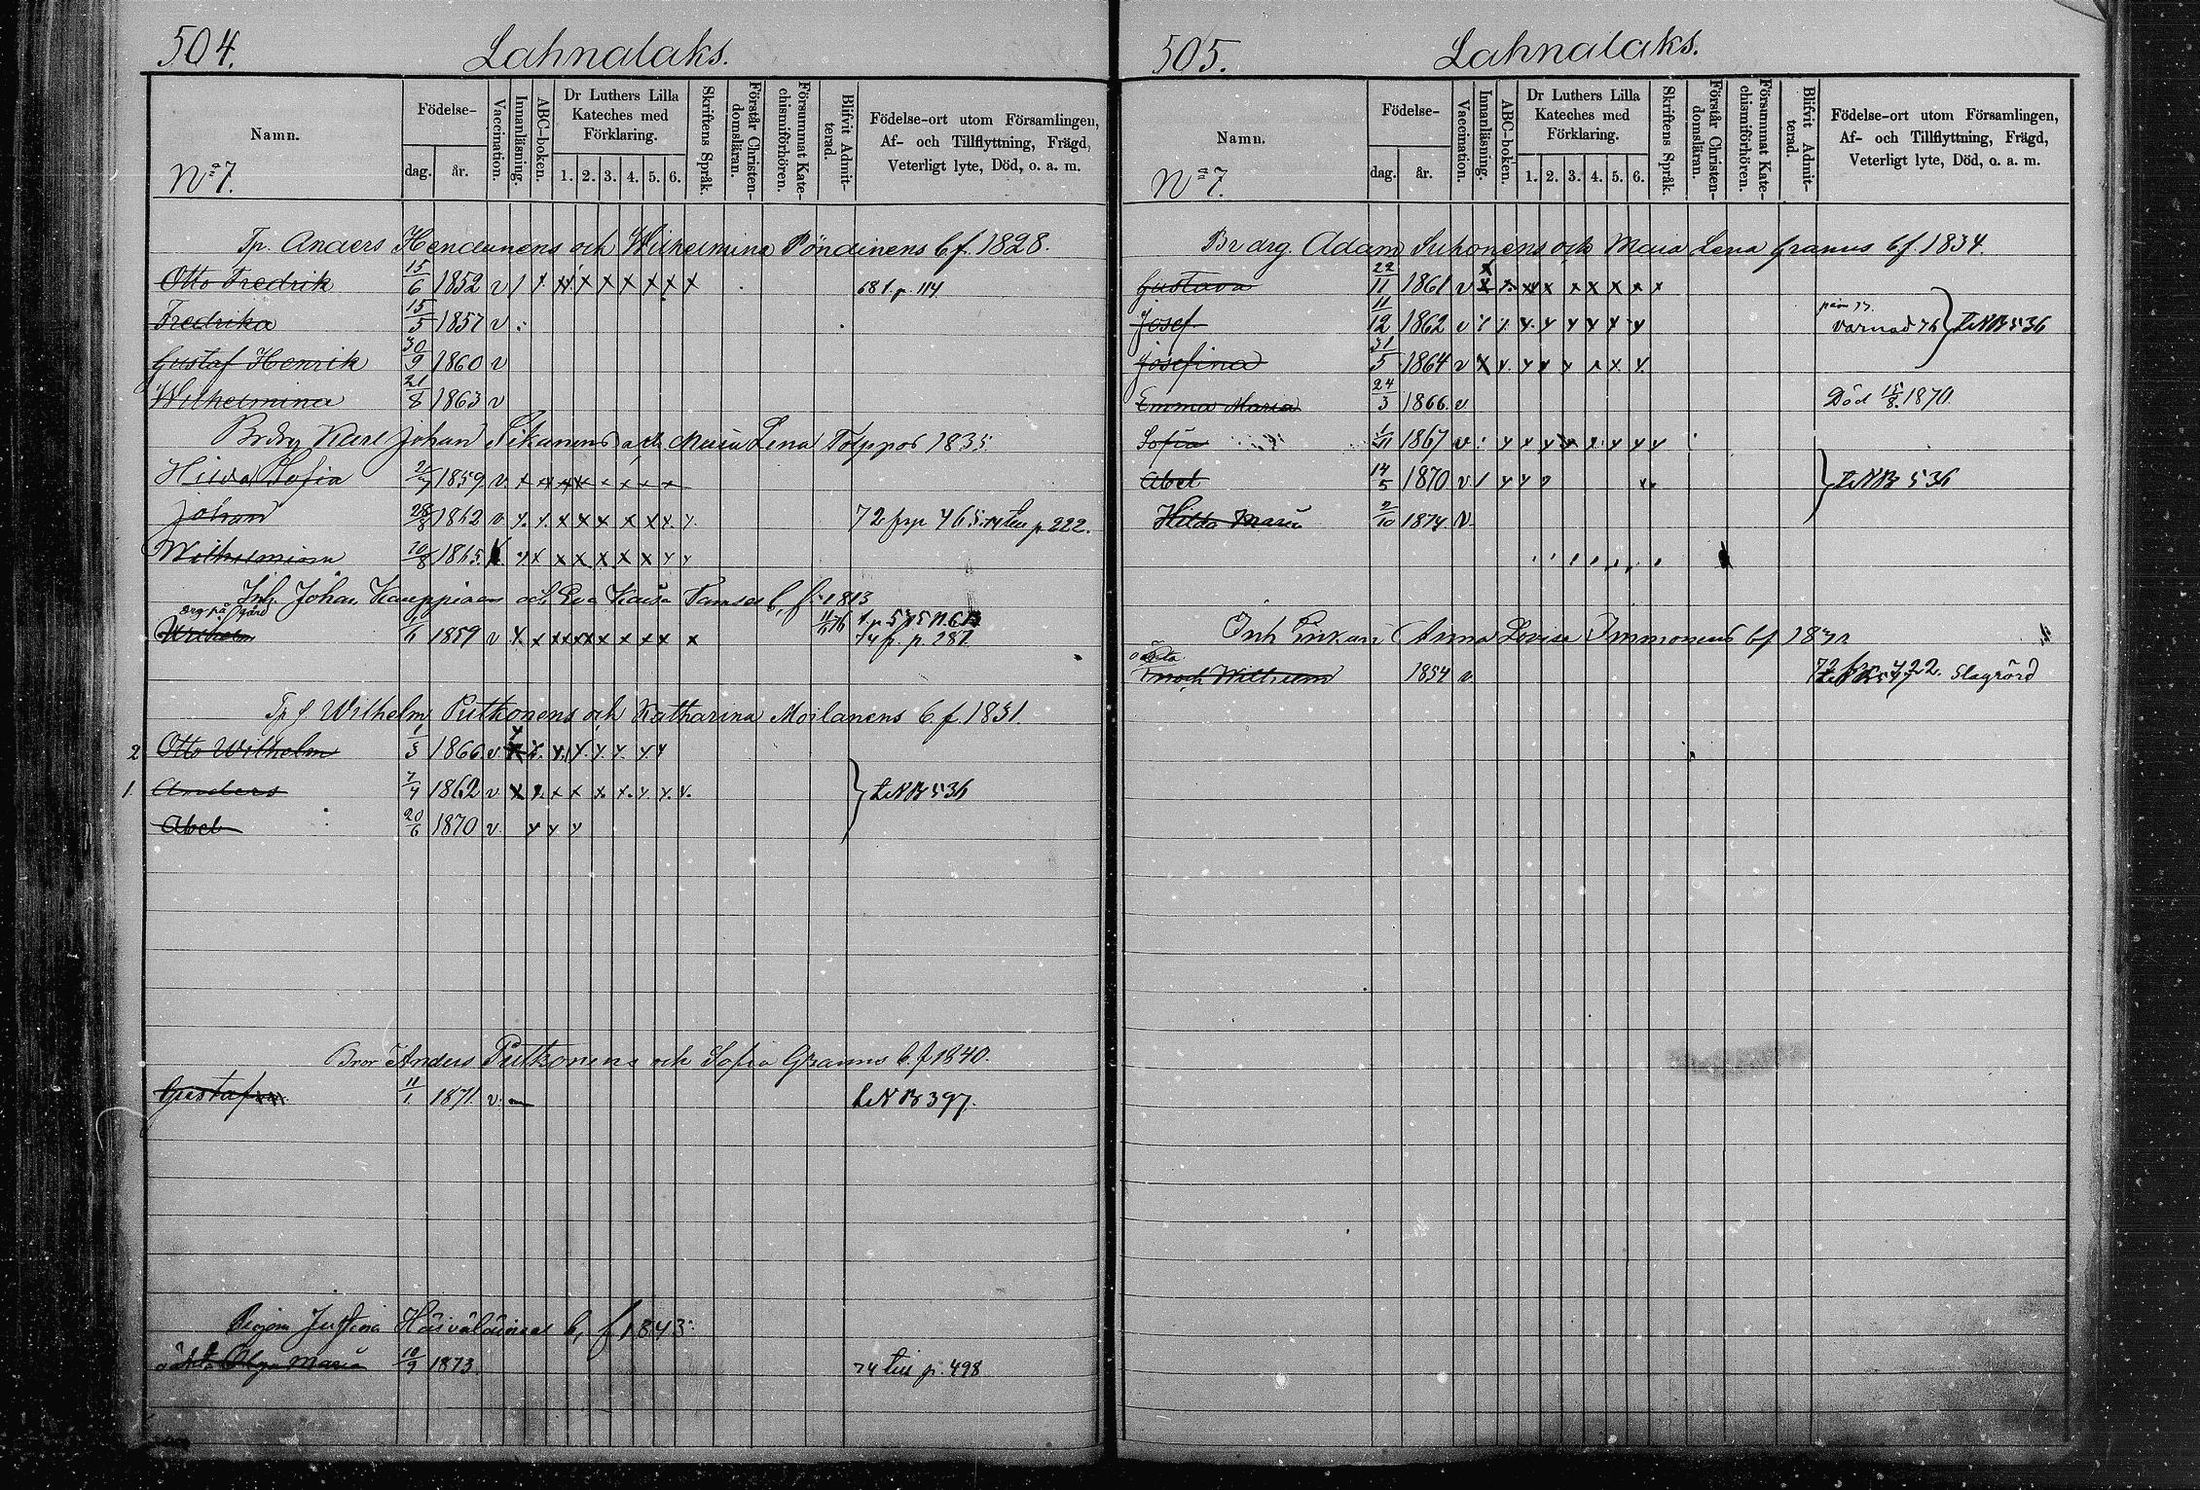 504.
Lahnalaks.
Namn.
Födelse-
dag.
år.
Vaccination.
Innanläsning.
ABC-boken.
Dr Luthers Lilla
Kateches med
Förklaring.
1. 2. 3. 4. 5. 6.
Skriftens Språk.
Förstår Christen-
domsläran.
Försummat Kate-
chismiförhören.
Blifvit Admit-
terad.
Födelse-ort utom Församlingen,
Af- och Tillflyttning, Frägd,
Veterligt lyte, Död, o. a. m.
No 7.
Tp. Anders och Wilhelmina Pöndinens b.f. 1828.
Otto Fredrik 15/6 1852 v 681. p. 114
Fredrika 15/5 1857 v
Gustaf Henrik 30/9 1860 v
Wilhelmina 21/8 1863 v
Brdrg Karl Johan och Maria Lena Tolppos 1835.
Hilda Sofia 1859 v.
Johan 1862 v. 72 fr p 465. p 222.
Wilhelmina 1865.
Inh. Johan Kauppinen och Eva Kaisa Tamses b. f. 1813
drg på gård
Wilhelm 1859 v
74 f. p. 287
Tp f Wilhelm Putkonens och Katharina Moilanens b f. 1831
2 Otto Wilhelm 1/3 1866. v.
1. Anders 7/4 1862 v L N B 536
Abel 20/6 1870 v.
Bror Anders Putkonens och Sofia Granns b f 1840.
Gustaf 11/1 1871. v. L N B 397.
Pigan Justina b, f 1843.
oäkta Olga Maria 10/9 1873. 74 p. 498
505.
Lahnalaks.
Namn.
Födelse-
dag.
år.
Vaccination.
Innanläsning.
ABC-boken.
Dr Luthers Lilla
Kateches med
Förklaring.
1. 2. 3. 4. 5. 6.
Skriftens Språk.
Förstår Christen-
domsläran.
Försummat Kate-
chismiförhören.
Blifvit Admit-
terad.
Födelse-ort utom Församlingen,
Af- och Tillflyttning, Frägd,
Veterligt lyte, Död, o. a. m.
No 7.
Br drg. Adam Suhonens och Maria Lena Granns b f. 1834.
Gustava 22/11 1861 v
Josef 11/12 1862 v varnad 76 L N B 536
Josefina 31/5 1864 v
Emma Maria 24/3 1866. v. Död 15/8. 1870.
Sofia 1/11 1867 v.
Abel 14/5 1870 v. L N B 536
Hilda Maria 2/10 1874 v.
Inh Enkan Anna Lovisa Immonens b f
oäkta
Enoch Wilhelm 1854 v. 722.